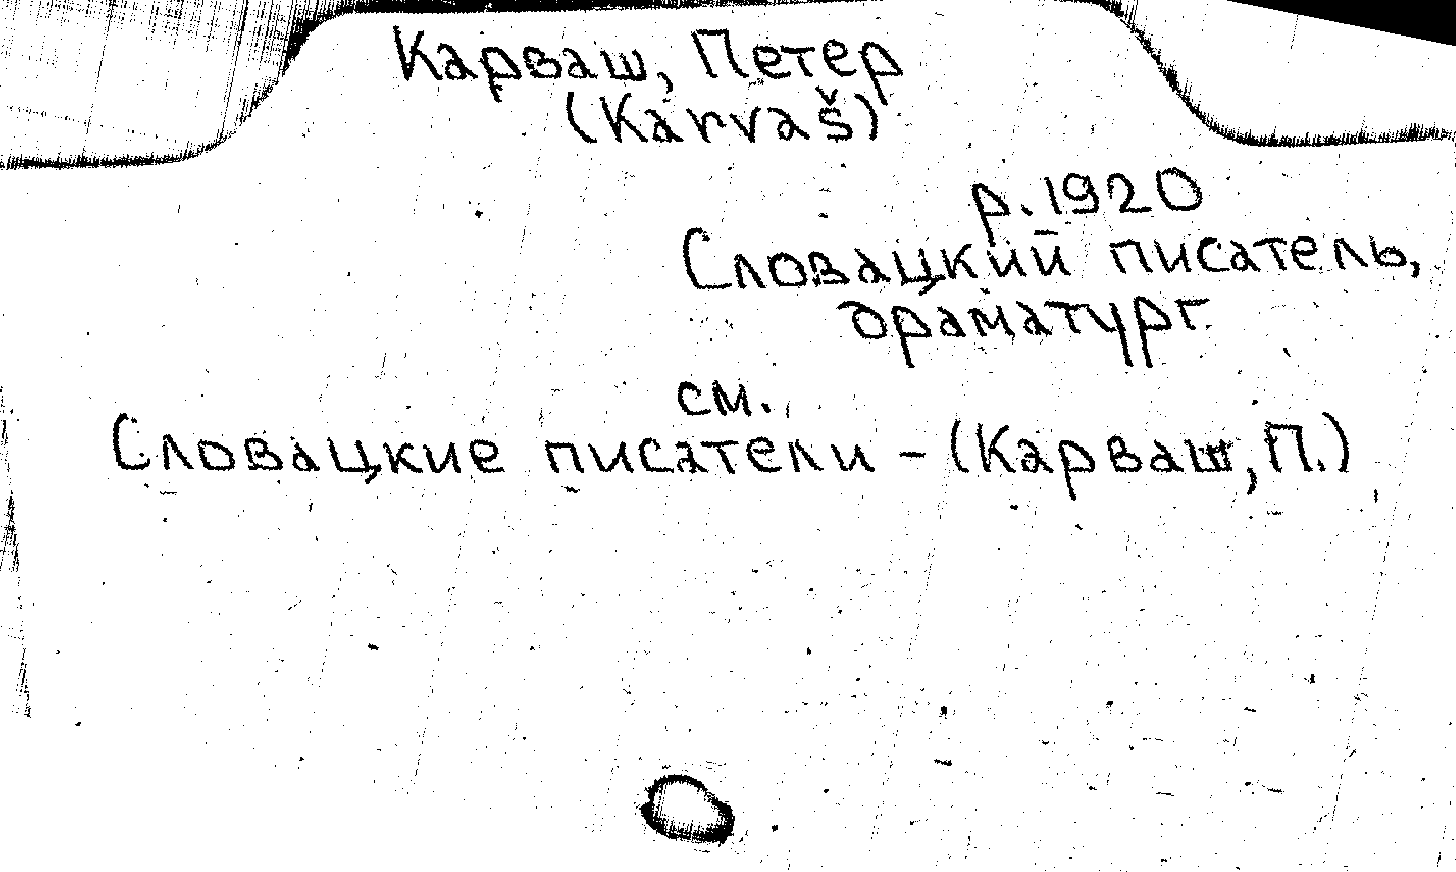 Карваш, Петер
(Karvaš)
р. 1920
Словацкий писатель,
драматург.
см.
Словацкие писатели – (Карваш, П.)